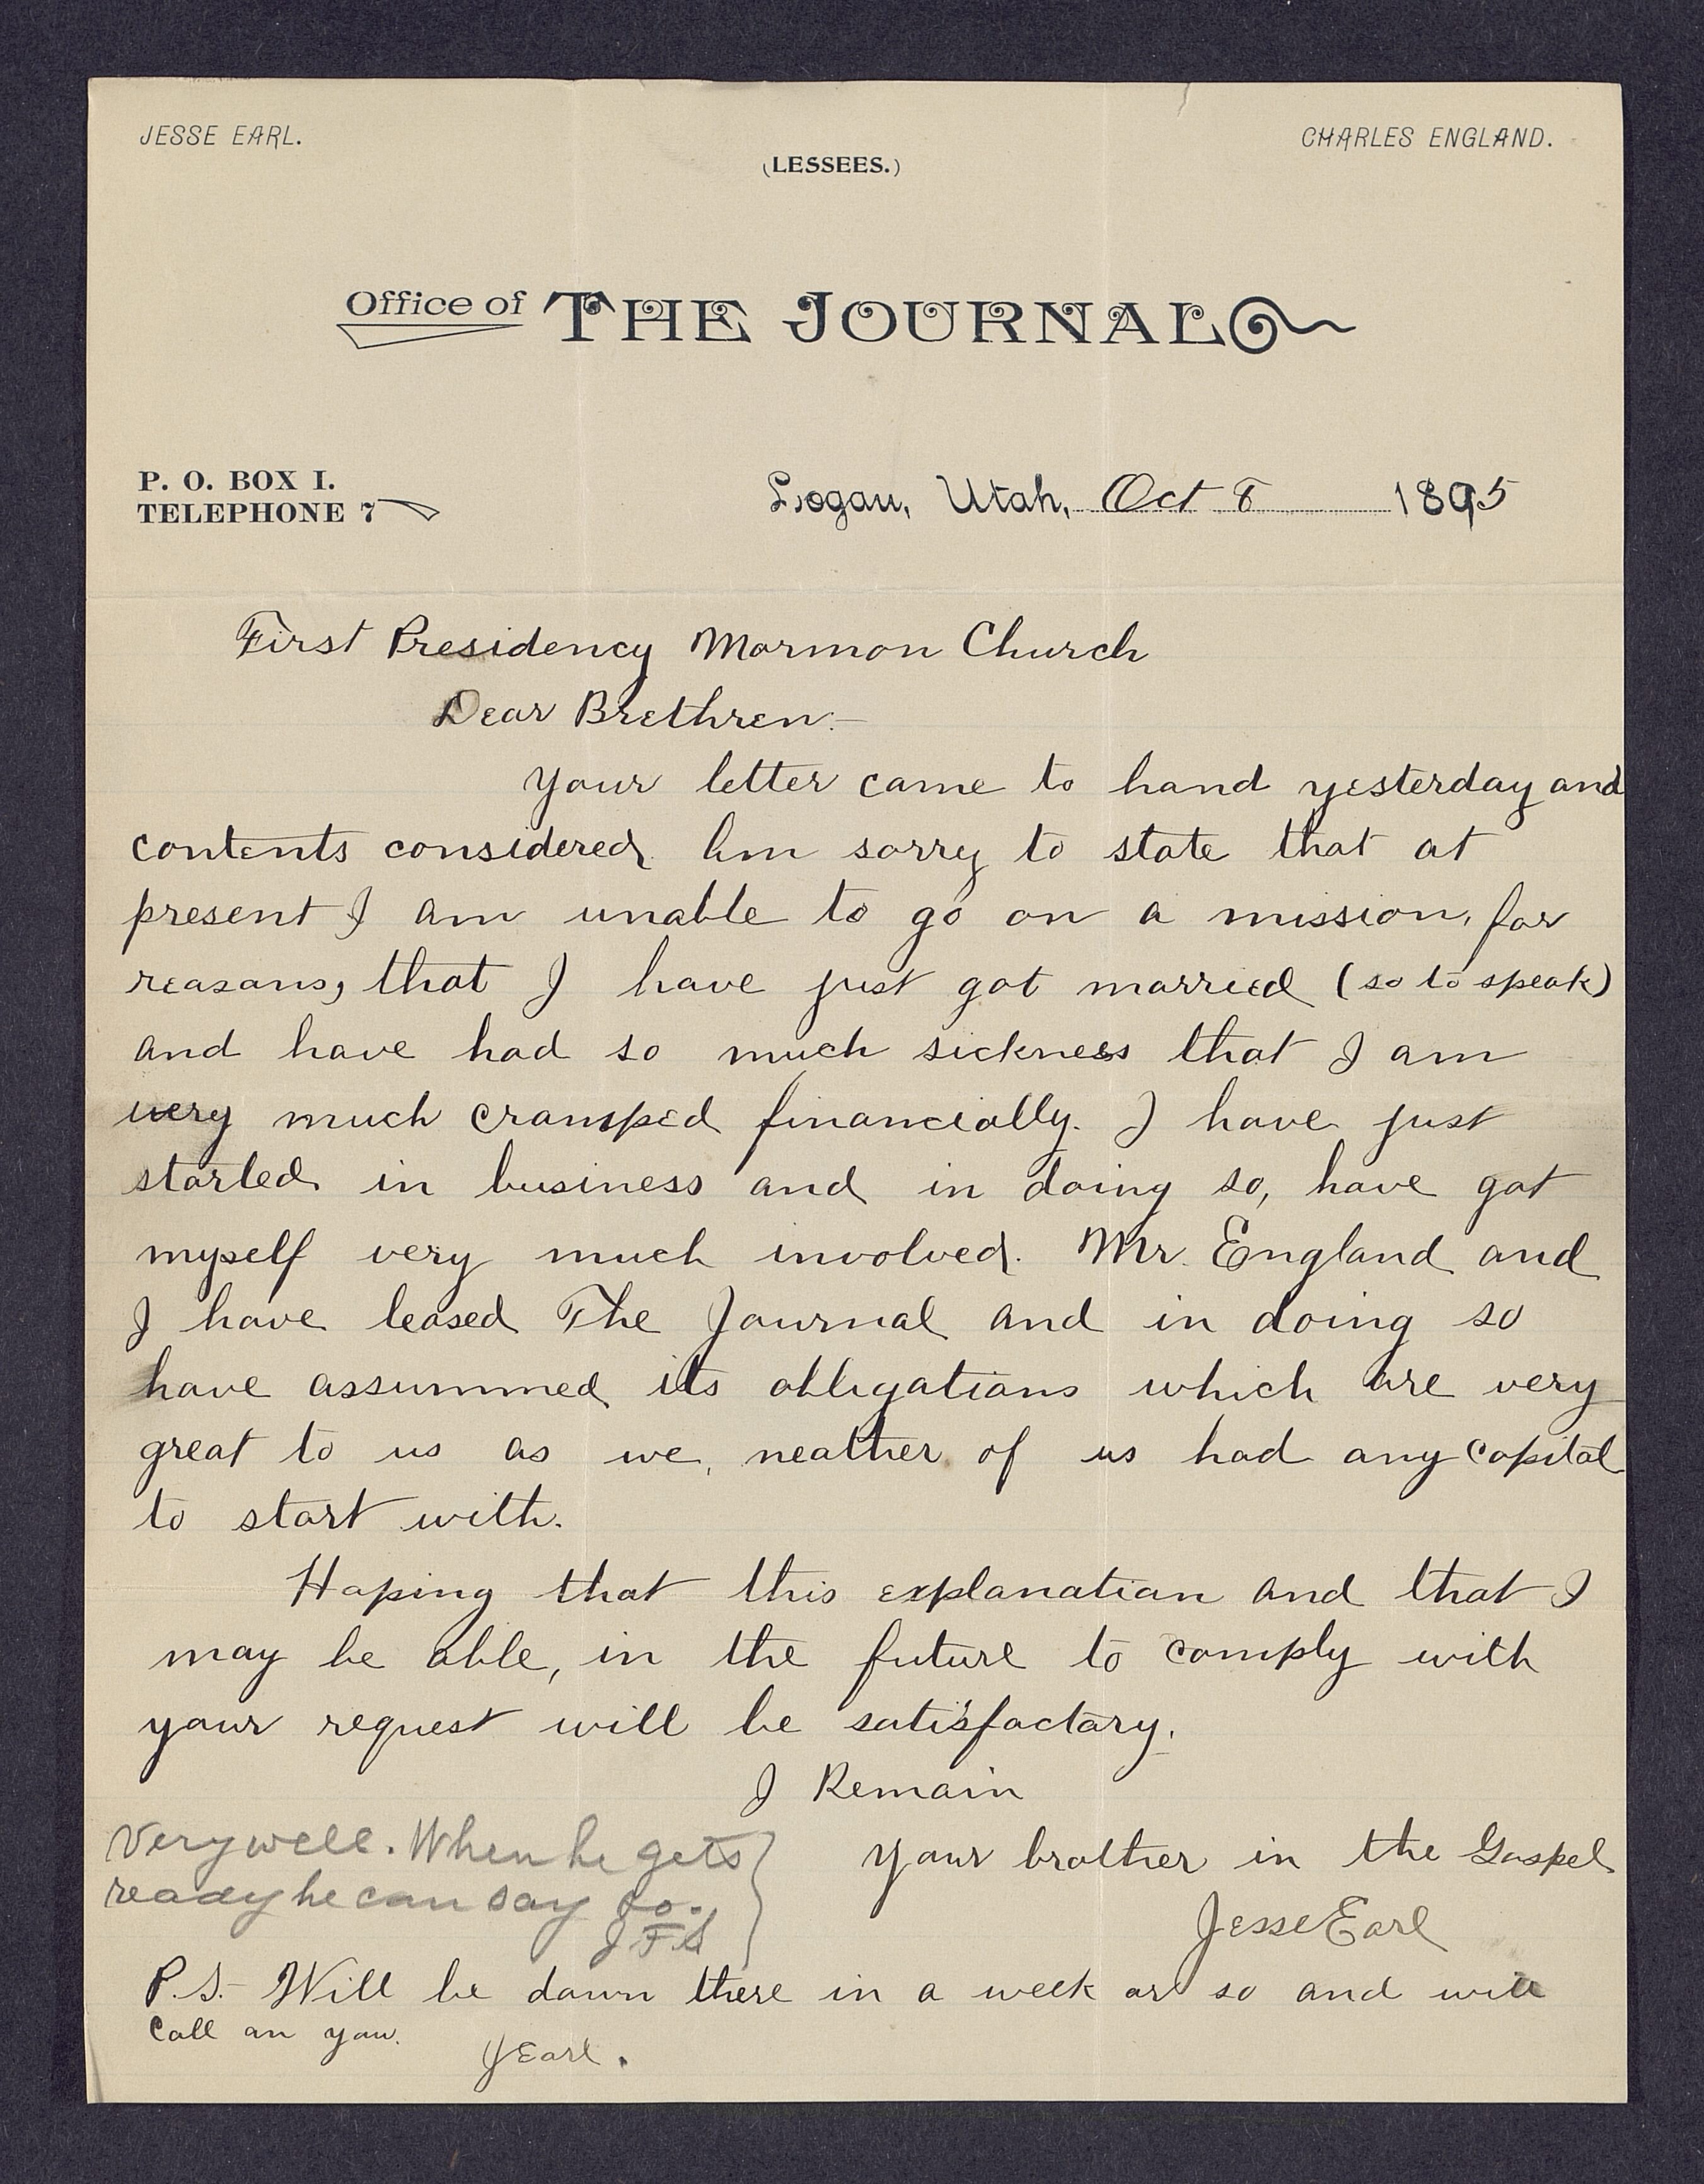 JESSE EARL.
CHARLES ENGLAND.
(LESSEES.)
Office of THE JOURNAL
P. O. BOX I.
TELEPHONE 7
Logan, Utah, Oct 8 1895
First Presidency Mormon Church
Dear Brethren:-
Your letter came to hand yesterday and
contents considered. Am sorry to state that at
present I am unable to go on a mission, for
reasons, that I have just got married (so to speak)
and have had so much sickness that I am
very much cramped financially. I have just
started in business and in doing so, have got
myself very much involved. Mr. England and
I have leased The Journal and in doing so
have assummed its obligations which are very
great to us as we, neather of us had any capital
to start with.
Hoping that this explanation and that I
may be able, in the future to comply with
your request will be satisfactory.
I Remain
Your brother in the Gospel
Jesse Earl
Very well. When he gets
ready he can say so.
J F.S
P.S.- Will be down there in a week or so and will
call on you.
J Earl.